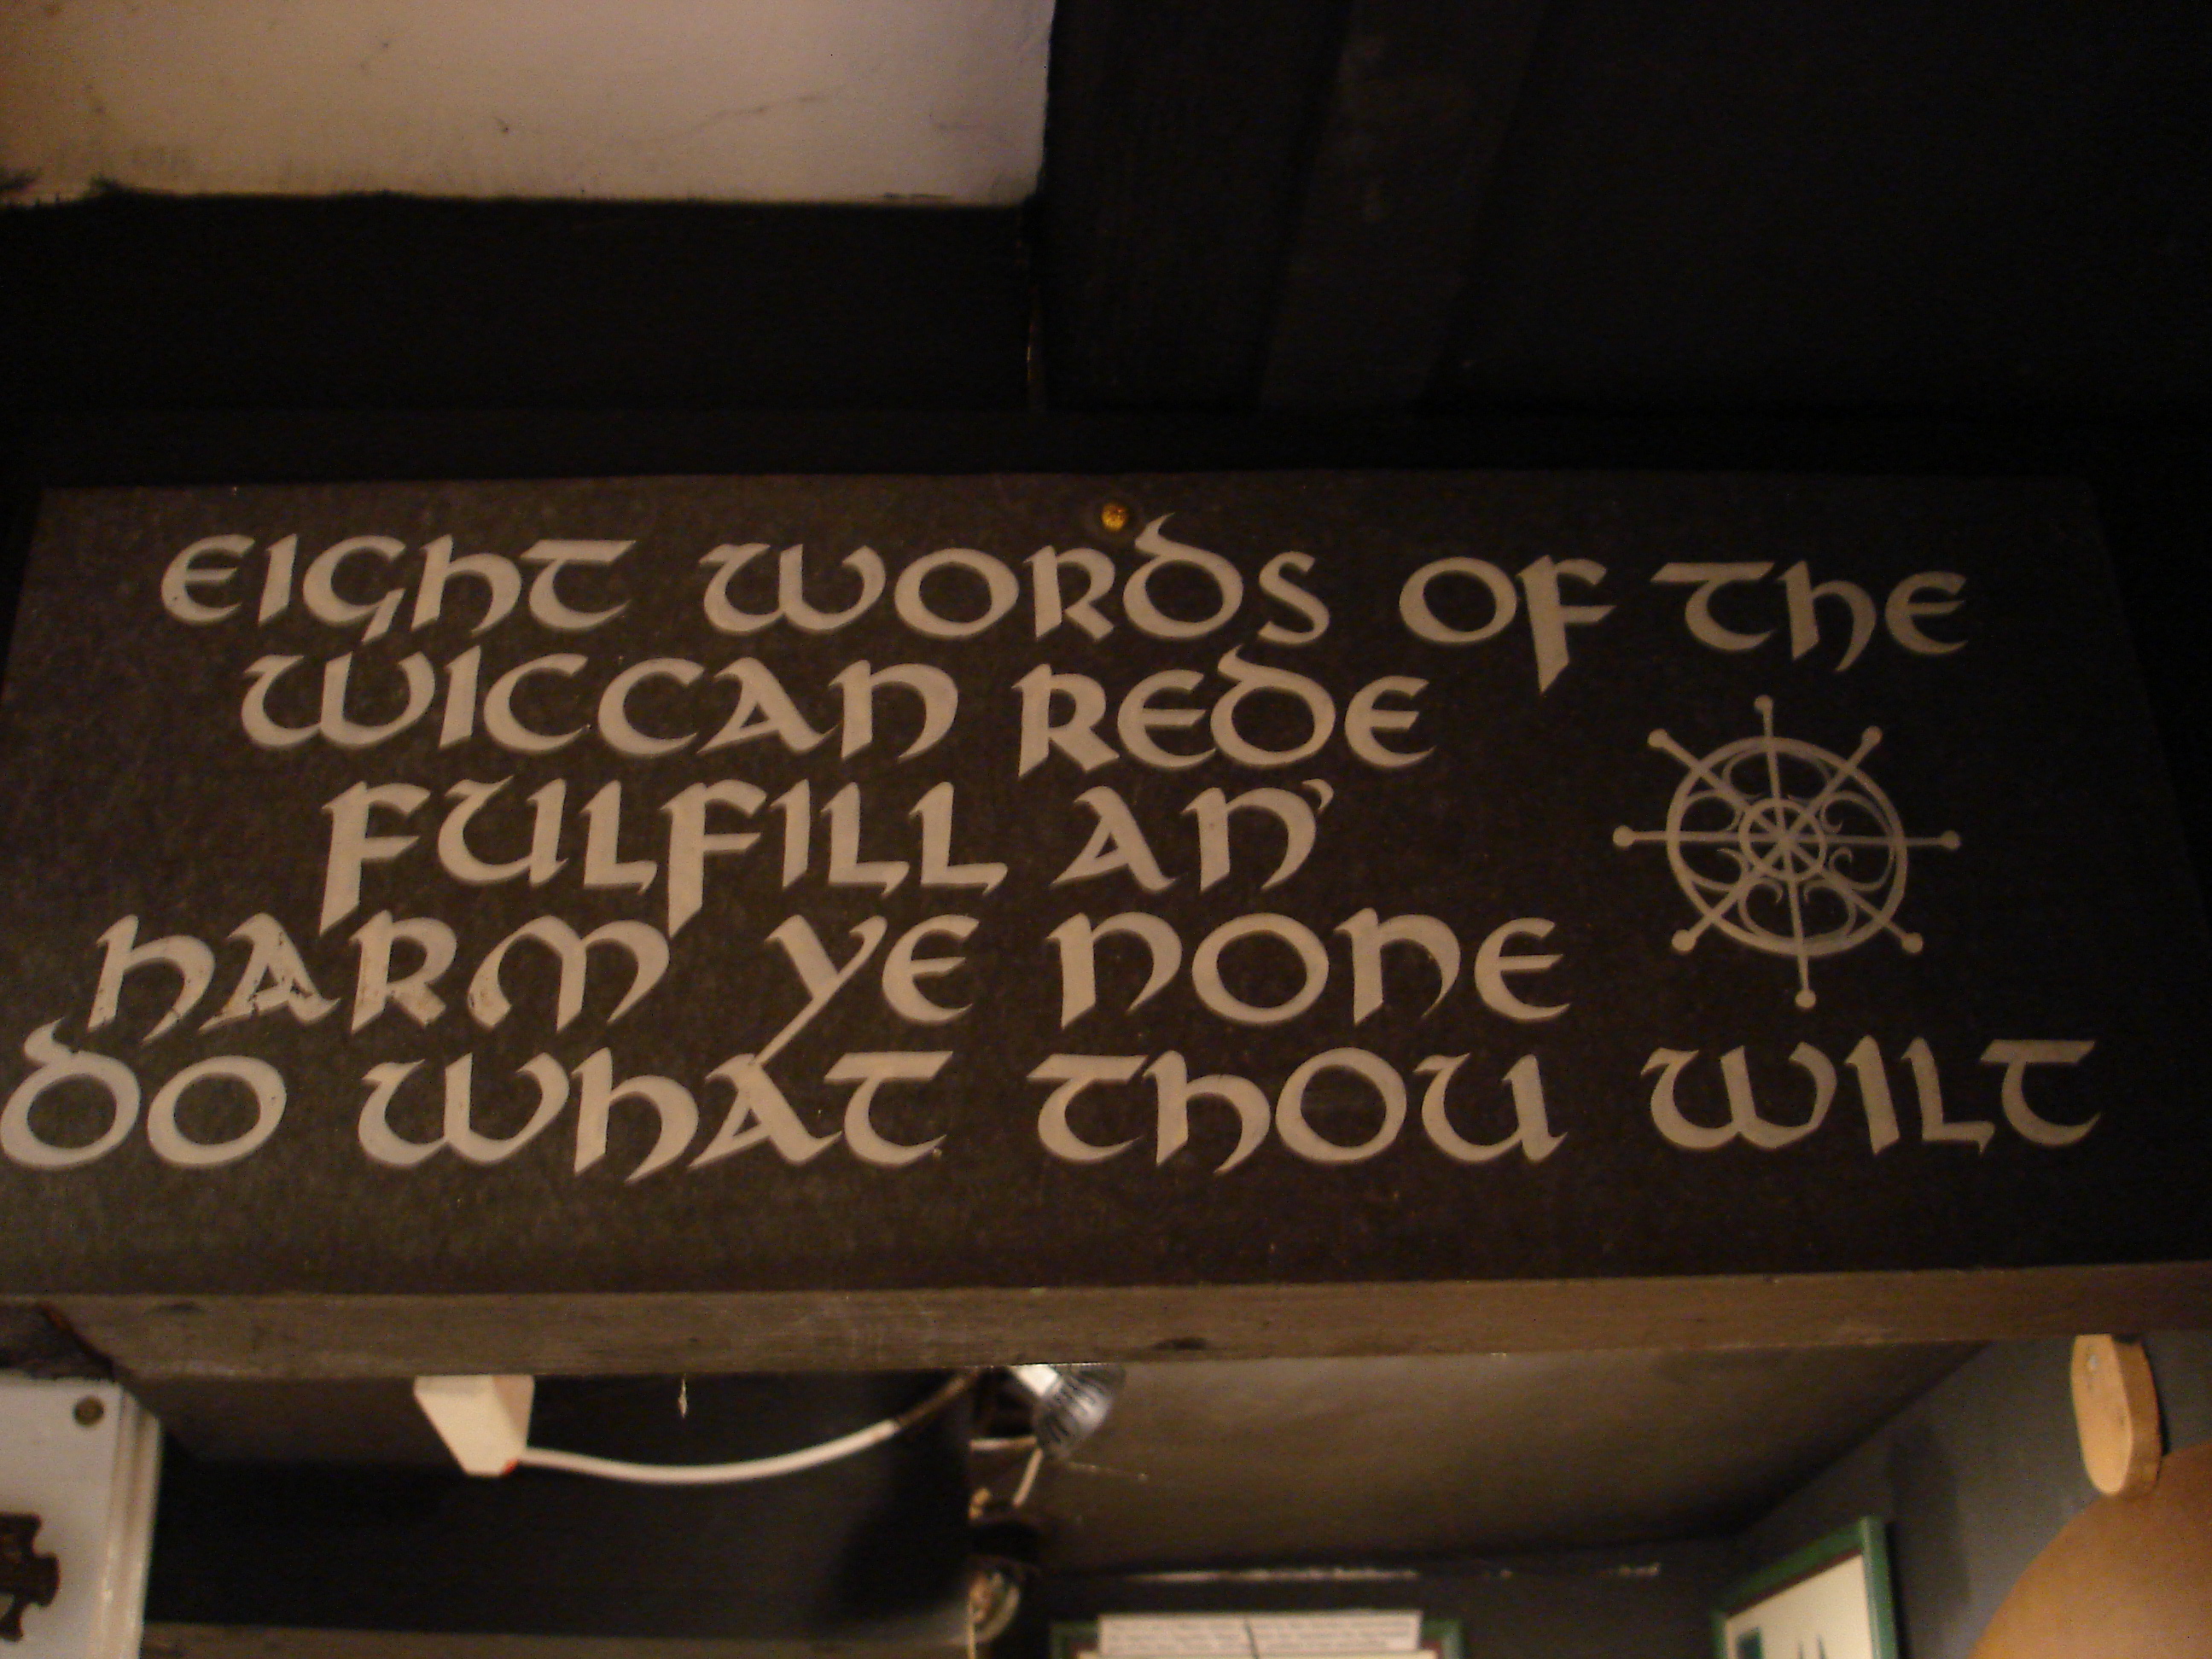 EIGHT WORDS OF THE
WICCAN REDE
FULFILL AN'
HARM YE NONE
DO WHAT THOU WILT